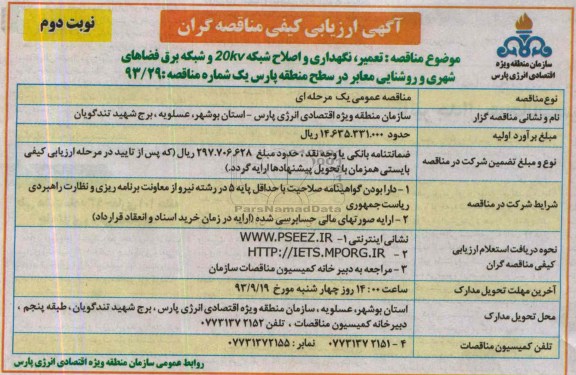 آگهی ارزیابی کیفی مناقصه گران
نوبت دوم
سازمان منطقه ویژه
اقتصادی انرژی پارس
موضوع مناقصه : تعمیر، نگهداری و اصلاح شبکه 20kv و شبکه برق فضاهای
شهری و روشنایی معابر در سطح منطقه پارس یک شماره مناقصه : ۹۳/۲۹
نوع مناقصه
مناقصه عمومی یک مرحله ای
نام و نشانی مناقصه گزار
سازمان منطقه ویژه اقتصادی انرژی پارس - استان بوشهر، عسلویه ، برج شهید تندگویان
مبلغ برآورد اولیه
حدود ۱۴.۶۳۵.۳۳۱.۰۰۰ ریال
نوع و مبلغ تضمین شرکت در مناقصه
ضمانتنامه بانکی یا وجه نقد ، حدود مبلغ ۲۹۷.۷۰۶.۶۲۸ ریال (که پس از تایید در مرحله ارزیابی کیفی
بایستی همزمان با تحویل پیشنهادها ارایه گردد.)
شرایط شرکت در مناقصه
۱- دارا بودن گواهینامه صلاحیت با حداقل پایه ۵ در رشته نیرو از معاونت برنامه ریزی و نظارت راهبردی
ریاست جمهوری
ParsNamadData
۲- ارایه صورتهای مالی حسابرسی شده (ارایه در زمان خرید اسناد و انعقاد قرارداد)
نحوه دریافت استعلام ارزیابی
کیفی مناقصه گران
نشانی اینترنتی ۱- WWW.PSEEZ.IR
۲ - HTTP://IETS.MPORG.IR
۳ - مراجعه به دبیر خانه کمیسیون مناقصات سازمان
آخرین مهلت تحویل مدارک
ساعت ۱۴:۰۰ روز چهار شنبه مورخ ۹۳/۹/۱۹
محل تحویل مدارک
استان بوشهر، عسلویه ، سازمان منطقه ویژه اقتصادی انرژی پارس ، برج شهید تندگویان ، طبقه پنجم ،
دبیرخانه کمیسیون مناقصات ، تلفن ۲۱۵۲ ۰۷۷۳۱۳۷
تلفن کمیسیون مناقصات
۴ - ۲۱۵۱ ۰۷۷۳۱۳۷ نمابر : ۰۷۷۳۱۳۷۲۱۵۵
روابط عمومی سازمان منطقه ویژه اقتصادی انرژی پارس